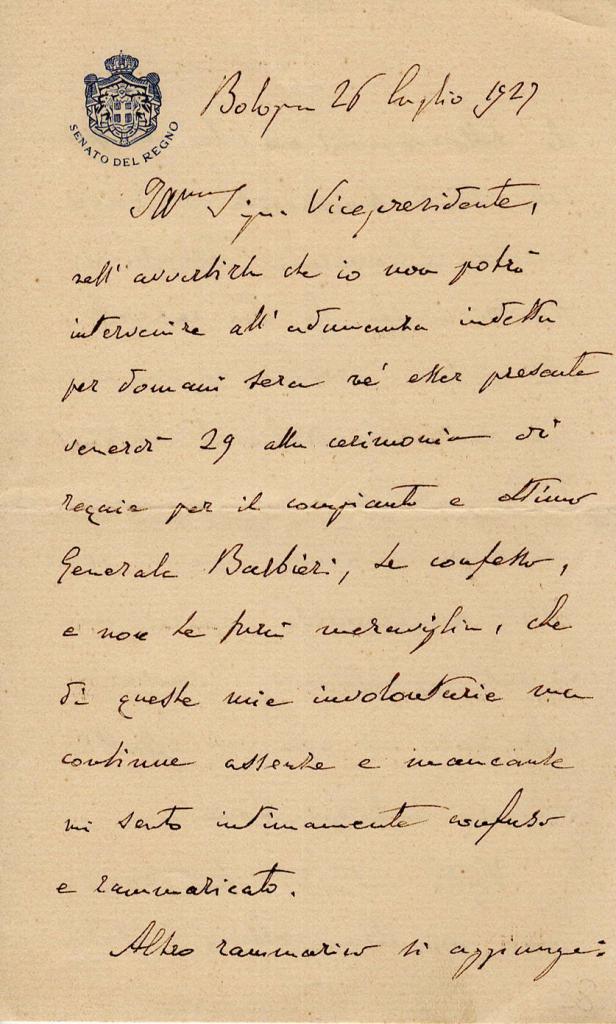 SENATO DEL REGNO
Bologna 26 luglio 1927
Sign. Vicepresidente,
nell' avvertirLa che io non potrò
intervenire all' adunanza indetta
per domani sera né esser presente
venerdì 29 alla cerimonia di
requie per il compianto e ottimo
Generale Barbieri, Le confesso,
e non Le farà meraviglia, che
di queste mie involontarie ma
continue assenze e mancanze
mi sento intimamente confuso
e rammaricato.
Altro rammarico si aggiunge: